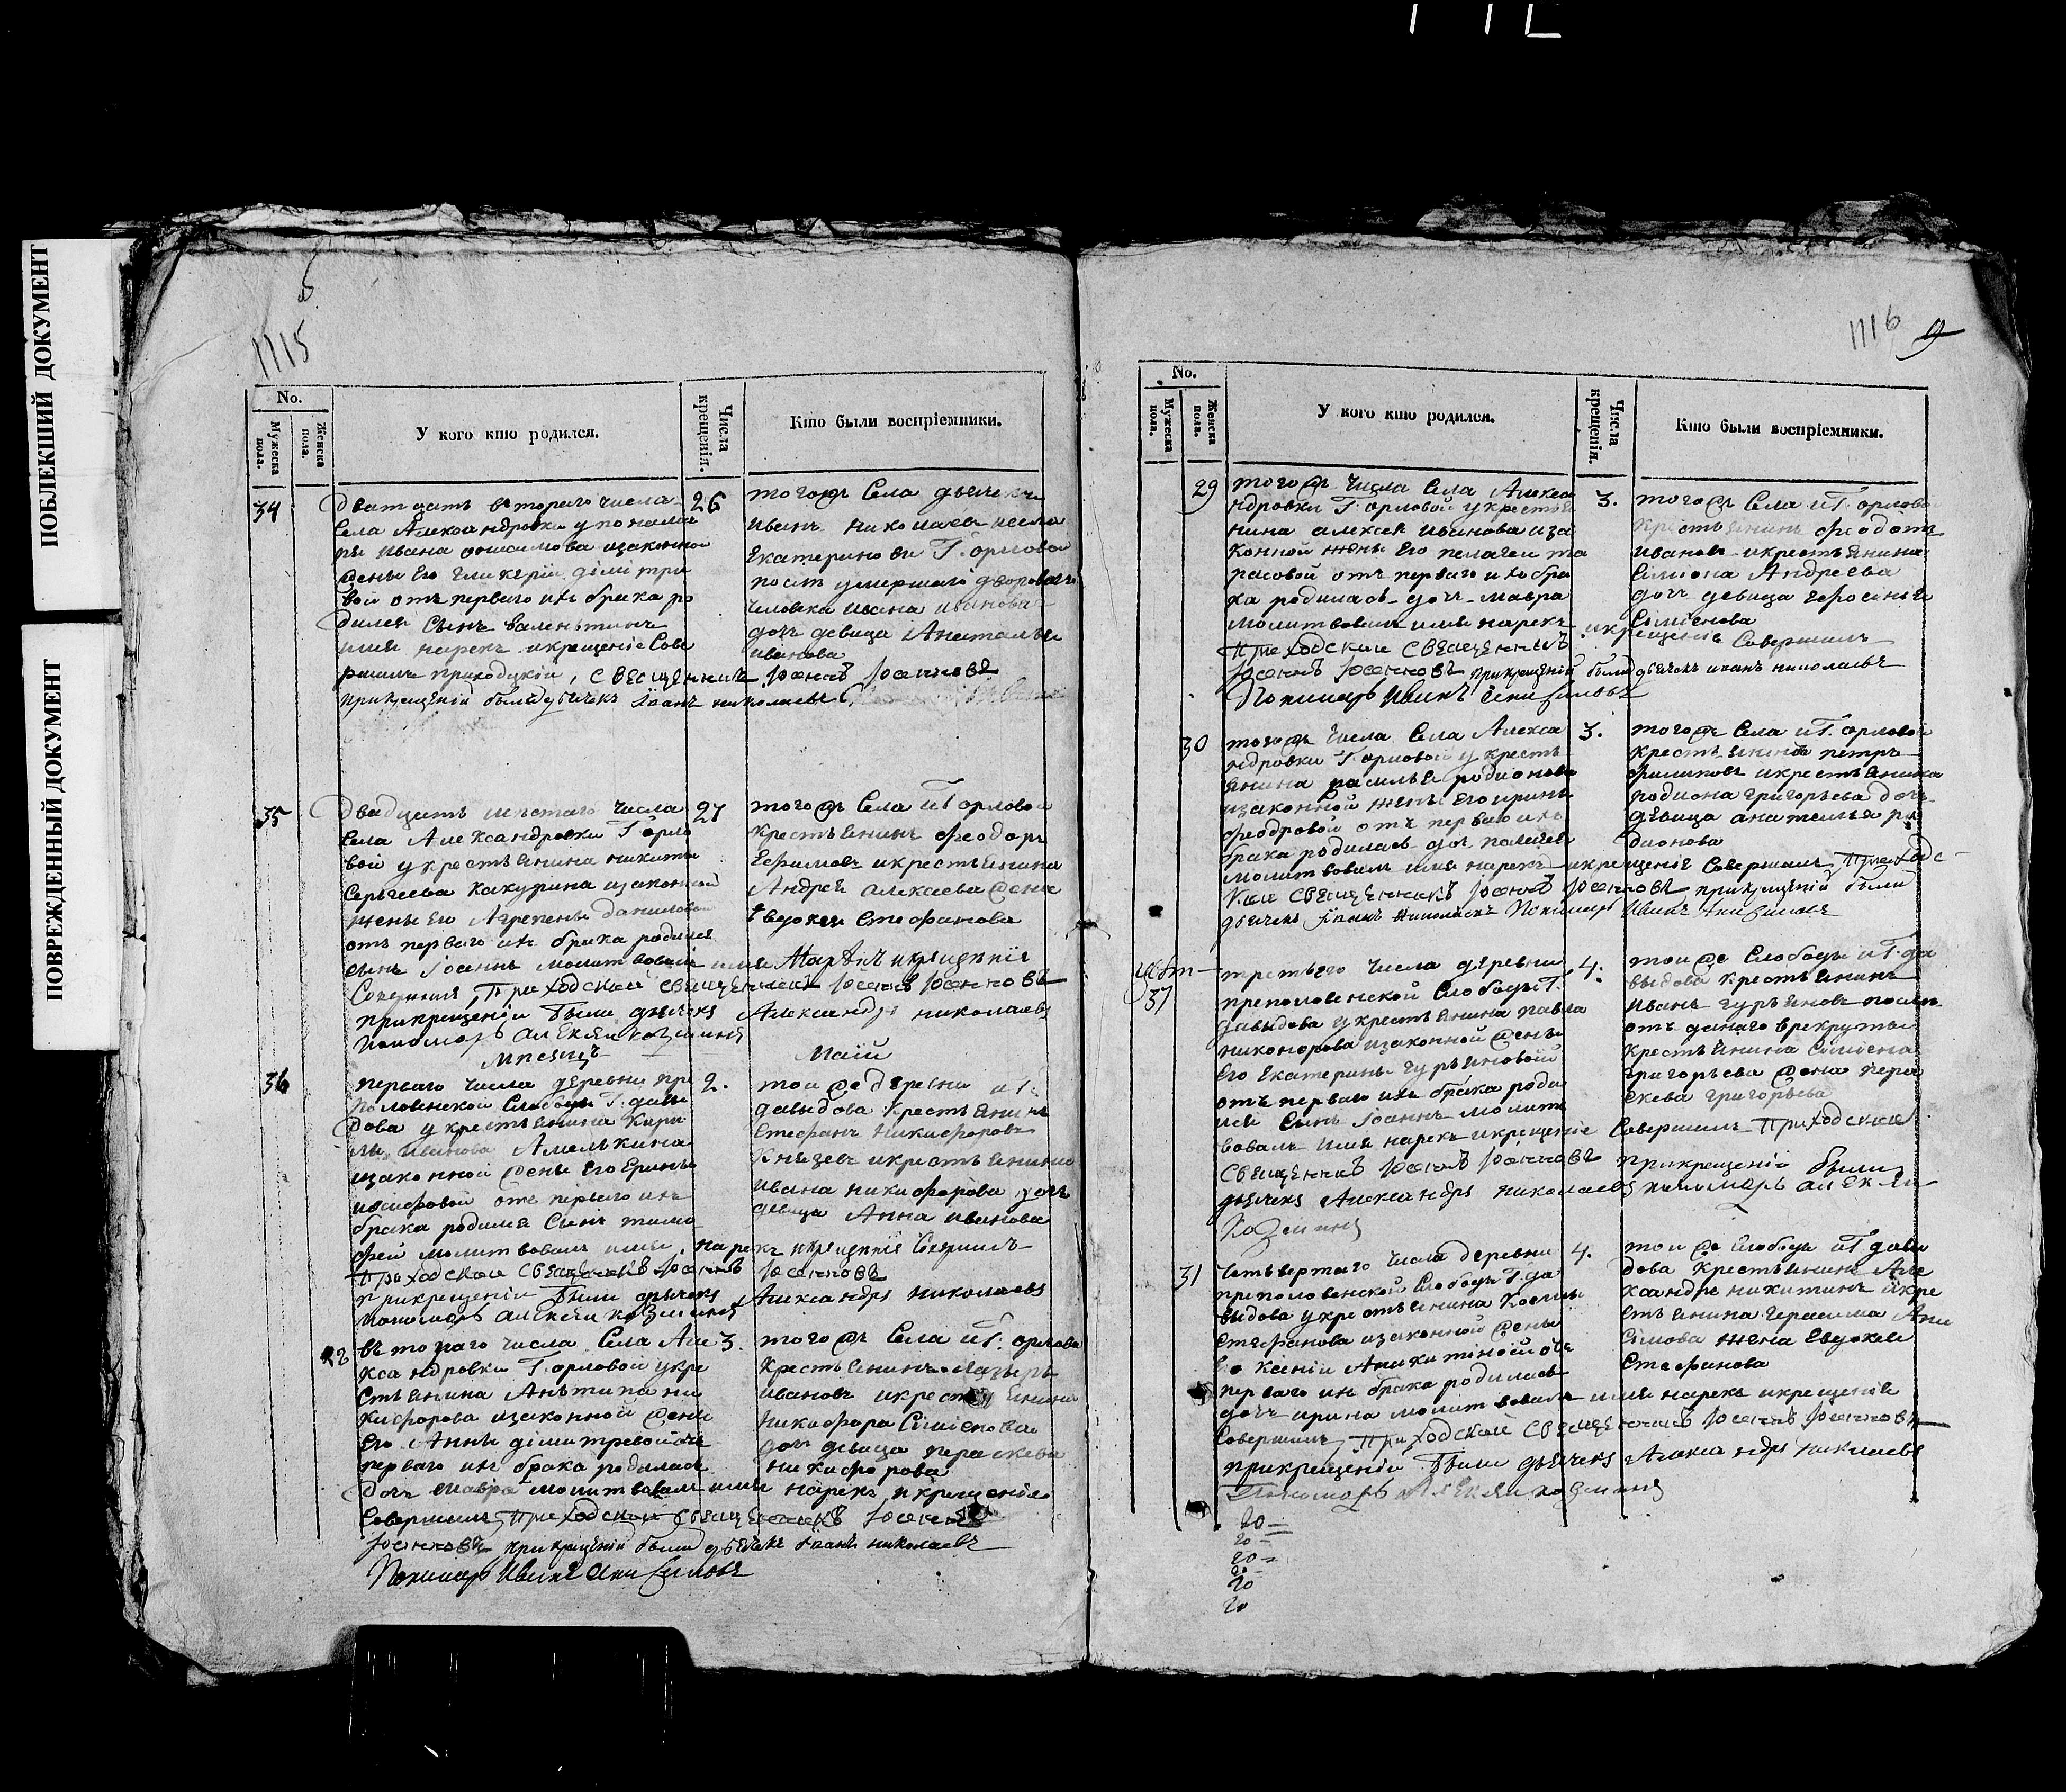 ПОБЛЕКШИЙ ДОКУМЕНТ
ПОВРЕЖДЕННЫЙ ДОКУМЕНТ
1115
No.
Мужеска пола.
Женска пола.
У кого кто родился.
Числа крещенія.
Кто были воспріемники.
34
Дватцать втораго числа
села Александровки у понома
ря Ивана онисимова изаконной
жены Его гликеріи димитри
вой отъ перваго ихъ брака ро
дился сынъ валентинъ
имя нарекъ икрещеніе Сове
ршилъ приходцкій, свещенникъ Іоаннъ Іоанновъ
прикрещеніи были дьячекъ Іоанъ николаевъ
26
тогожъ Села дьячекъ
иванъ николаевъ исела
Екатериновки Г. орловой
послѣ умершаго двороваго
человека ивана иванова
дочь девица Анатолья
иванова
35
Двадцать шестаго числа
села Александровки Г орло
вой укрестьянина никиты
Сергеева Какурина изаконной
жены Его Агрепены даниловой
отъ перваго ихъ брака родился
сынъ Іоаннъ молитвовалъ имя нарекъ икрещеніе
Совершилъ приходской свещенникъ Іоаннъ Іоанновъ
прикрещеніи были дьячекъ Александръ николаевъ
пономорь алексеи козминъ
27
тогожъ села иГ орловой
крестьянинъ феодоръ
Ефимовъ икрестьянина
Андрея алексаева жена
Евдокея Стефанова
мпсяцъ маій
36
перваго числа деревни пре
половенской Слободы Г. давы
дова у крестьянина Кири
лы иванова Амелькина
изаконной жены Его Ерины
иосифовой отъ перваго ихъ
брака родился Сынъ тимо
фей молитвовалъ имя нарекъ икрещеніе Совершилъ
приходской свещенникъ Іоаннъ Іоанновъ
прикрещеніи были дьячекъ Александръ николаевъ
пономорь алексеи козминъ
2.
тои же деревни иГ.
давыдова крестьянинъ
Стефанъ никифоровъ
Князевъ икрестьянина
ивана никифорова дочь
девица Анна иванова
28
втораго числа Села Але
ксандровки Г. орловой укре
стьянина Антипа ни
кифорова изаконной жены
Его Анны димитревой отъ
перваго ихъ брака родилась
дочь мавра молитвовалъ имя нарекъ икрещеніе
Совершилъ приходской свещенникъ Іоаннъ
Іоанновъ прикрещеніи были дьячекъ Іванъ николаевъ
Пономарь Иванъ Анисимовъ
3.
тогожъ Села иГ. орловой
крестьянинъ Лазырь
ивановъ икрестьянина
никифора Симіонова
дочь девица параскева
никифорова
1116
9
No.
Мужеска пола.
Женска пола.
У кого кто родился.
Числа крещенія.
Кто были воспріемники.
29
тогожъ числа села Алекса
ндровки Г. орловой укрестья
нина алексея иванова иза
конной жены Его пелагеи та
расовой отъ перваго ихъ бра
ка родилась дочь мавра
молитвовалъ имя нарекъ икрещеніе Совершилъ
приходской свещенникъ
Іоаннъ Іоанновъ прикрещеніи были дьячекъ иванъ николаевъ
Пономарь Иванъ Анисимовъ
3.
тогожъ Села иГ. орловой
крестьянинъ феодотъ
ивановъ икрестьянина
Симіона Андреева
дочь девица Ефросинья
Симіонова
30
тогожъ числа Села Алекса
ндровки Г. орловой у кресть
янина василья родионова
изаконной жены Его ирины
феодровой отъ перваго ихъ
брака родилась дочь пелагея
молитвовалъ имя нарекъ икрещеніе Совершилъ приходс
кои свещенникъ Іоаннъ Іоанновъ прикрещеніи были
дьячекъ Іванъ Николаевъ Пономарь Иванъ Анисимовъ
3.
тогожъ Села иГ. орловой
крестьянинъ петръ
филиповъ икрестьянина
родиона григорьева дочь
девица анатолья ро
дионова
37
третьего числа деревни
преполовенской Слободы Г.
давыдова укрестьянина павла
никонорова изаконной жены
Его Екатерины гурьяновой
отъ перваго ихъ брака роди
лся Сынъ Іоаннъ молит
вовалъ имя нарекъ икрещеніе Совершилъ приходской
свещенникъ Іоаннъ Іоанновъ прикрещеніи были
дьячекъ Александръ николаевъ пономорь алексеи
козминъ
4.
тои же Слободы иГ. да
выдова крестьянинъ
иванъ гурьяновъ послѣ
отъданаго врекруты
крестьянина Симіена
григорьева жена пара
скева григорьева
31
Четьвертаго числа деревни
преполовенской Слободы Г. да
выдова укрестьянина Космы
Стефанова изаконной жены
Его Ксеніи Аникитиной отъ
перваго ихъ брака родилась
дочь ирина молитвовалъ имя нарекъ икрещеніе
Совершилъ приходской свещенникъ Іоаннъ Іоанновъ
прикрещеніи были дьячекъ Александръ николаевъ
Пономорь Алексеи козминъ
4.
тои же Слободы иГ давы
дова крестьянинъ Але
ксандръ никитинъ икре
стьянина герасима Ани
симова жена Евдокея
Стефанова
20
20
20
20
20
20